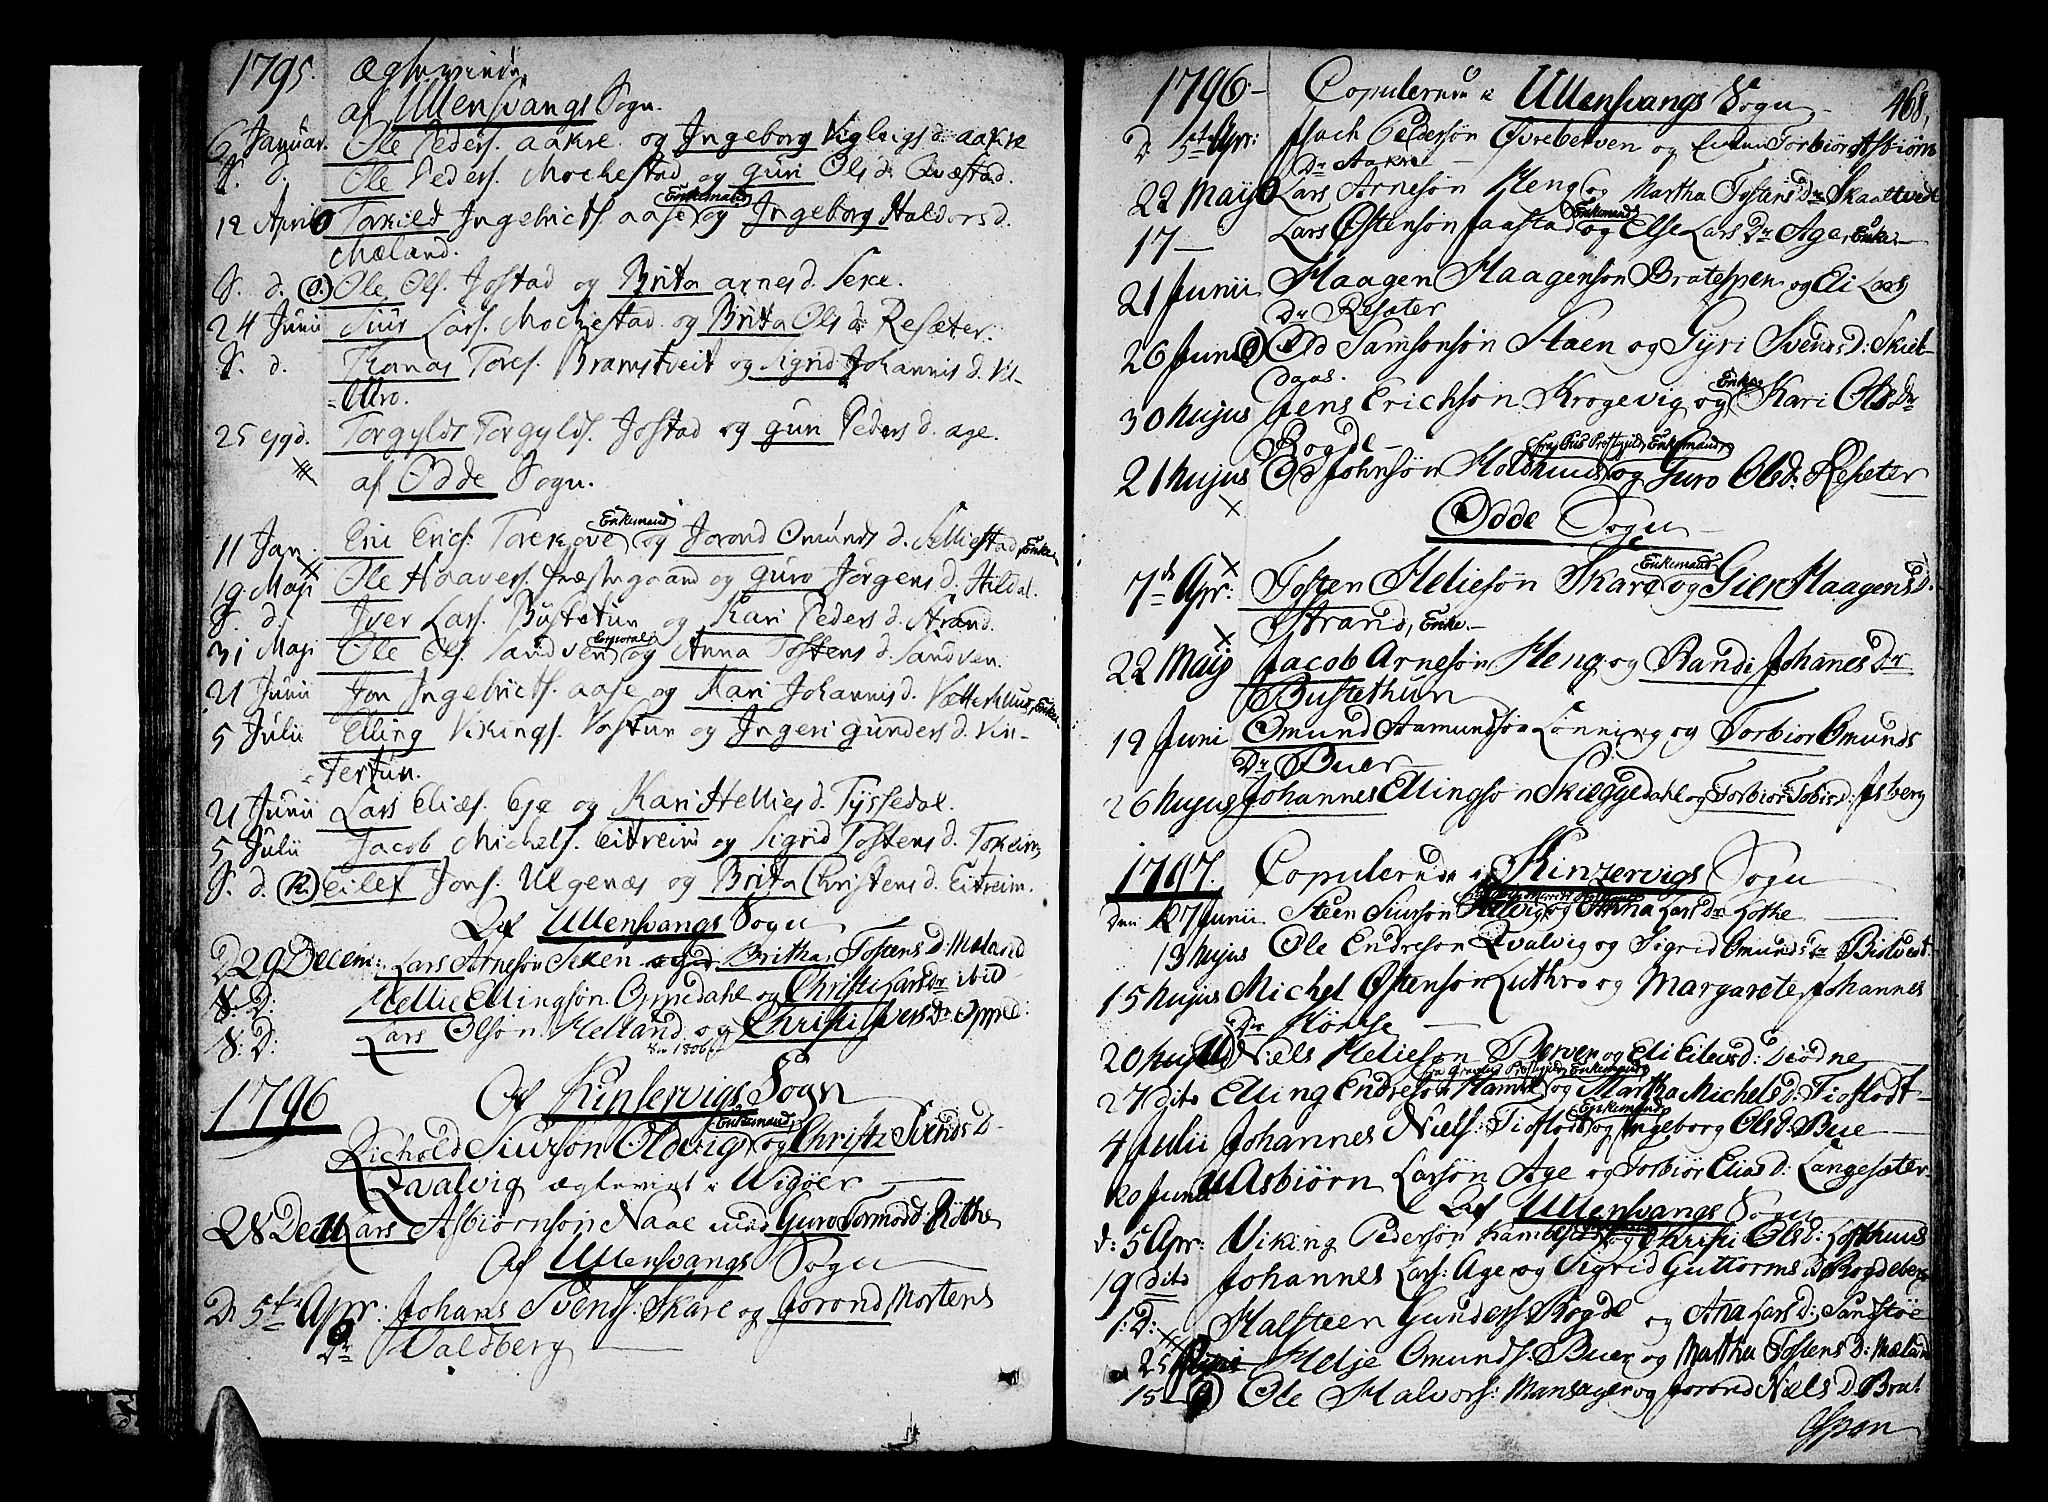 1795.
af Ullensvangs Sogn.
6 Januar. Ole Peders. Aakre og Ingeborg Viglvigs d. Aakre
S. d. Ole Peders. Mochestad og Guri Ols d. Qvæstad.
12 April Torkild Ingebricts. Aase Enkemand og Ingeborg Haldors d.
Mæland.
S. d. Ole Ols. Jostad og Brita Arnes d. Sexe.
24 Junii Siur Lars. Mochestad og Brita Ols d. Resæter.
S. d. Thomas Tores. Bramstveit og Sigrid Johannis d. Vil-
25 Torgyls Torgyls. Jostad og Guri Peders d. Age.
af Odde Sogn.
11 Jan. Eric Erics. Enkemand og Jorond Omunds d. Selliestad, Enke
19 Maji Ole Haavers. Præstegaard og Guro Jørgens d. Hildal.
S. d. Iver Lars. Bustetun og Kari Peders d. Strand.
31 Maji Ole Ols. Sandven Corporal og Anna Tostens d. Sandven.
21 Junii Jon Ingebricts. Aase og Mari Johannis d. Enke
5 Julii Elling Vikings. Vastun og Ingeri Gunders d. Vin-
tertun.
21 Junii Lars Elias. Eje og Kari Hellies d. Tyssedal.
5 Julii Jacob Michels. Eitreim og Sigrid Tostens d. Tokeim
S. d. Eilef Jons. Ulgenæs og Brita Christens d. Eitreim.
Af Ullensvangs Sogn
D 29 Decem: Lars Arneson Sexen og Britha Tostens D: Mæland
S: D: Hellie Ellingsøn Oppedahl og Christi Lars Dr ibid
S: D: Lars Olsøn Helland og Christi Ivers Dr Opped:
1796 Af Kinservigs Sogn
Richold Siurson Oldvig Enkemand og Christi Svends D.
Qvalvig
28 Dec Lars Asbiørnson Naae med Guro Tormodd: Røthe
Af Ullensvangs Sogn
D. 5te Apr: Johans Svends: Skare og Jorond Mortens
Dr Valdberg
1796 Copulerede i Ullensvangs Sogn 468.
D 5te Apr: Isach Pederson Øvreberven og Torbior Asbiørn
Dr Aakre
22 Maij Lars Arnesøn Heng og Martha Tostens Dr Skaaltvedt
17 Lars Østenson Jaastad Enkemand og Else Lars Dr Age, Enke
21 Junii Haagen Haagensøn Bratespen og Eli Lars
Dr Resæter
26 Junii Od Samsonsøn Staen og Gyri Svens d: Skiel-
daas.
30 hujus Jens Erichson Krogevig og Enke Kari Ols dr
Bogde
21 hujus Od Johnsøn Holdhuus Enkemand og Guro Olsd: Resæter
Odde Sogn
7de Apr: Tosten Heliesøn Skare Enkemand og Gier Haagens D.
Strand, Enke
22 Maij Jacob Arnesøn Heng og Randi Johanes Dr
Bustethun
19 Junii Omund Aamundsøn Lønning og Torbior Omunds
Dr Buer
26 hujus Johannes Ellingsøn Skieggedahl og Torbior d: Isberg
1797. Copulerede i Kinzervigs Sogn
Den 7 Junii Steen Siursøn og Anna Lars Dr Lothe
13 hujus Ole Endreson Qvalvig og Sigrid Omunds Dr
15 hujus Michel Østensøn Luthro og Margarete Johannes
Dr
20 hujus Niels Helieson Berven og Eli Eilevs d: Diødne
27 dito Elling Endresøn Enkemand og Martha Michels d: Tioflodt
4 Julii Johannes Niels: Tioflodt Enkemand og Ingeborg Ols d: Bue
20 Junii Asbiørn Larsøn Age og Torbiør Elias d: Langesæter
Af Ullensvangs Sogn
d: 5 Apr: Viking Pedersøn og Christi Ols d: Lofthuus
19 dito Johannes Lars: Age og Sigrid Guttorms d
1: D: Halsteen Gunders: Bogde og Ana Lars d: Sandstøe
25 Helje Omunds. Buer og Martha Tostens D: Mæland
15 Ole Halvors: Mansager og Jorond Niels D. Brat
Espen